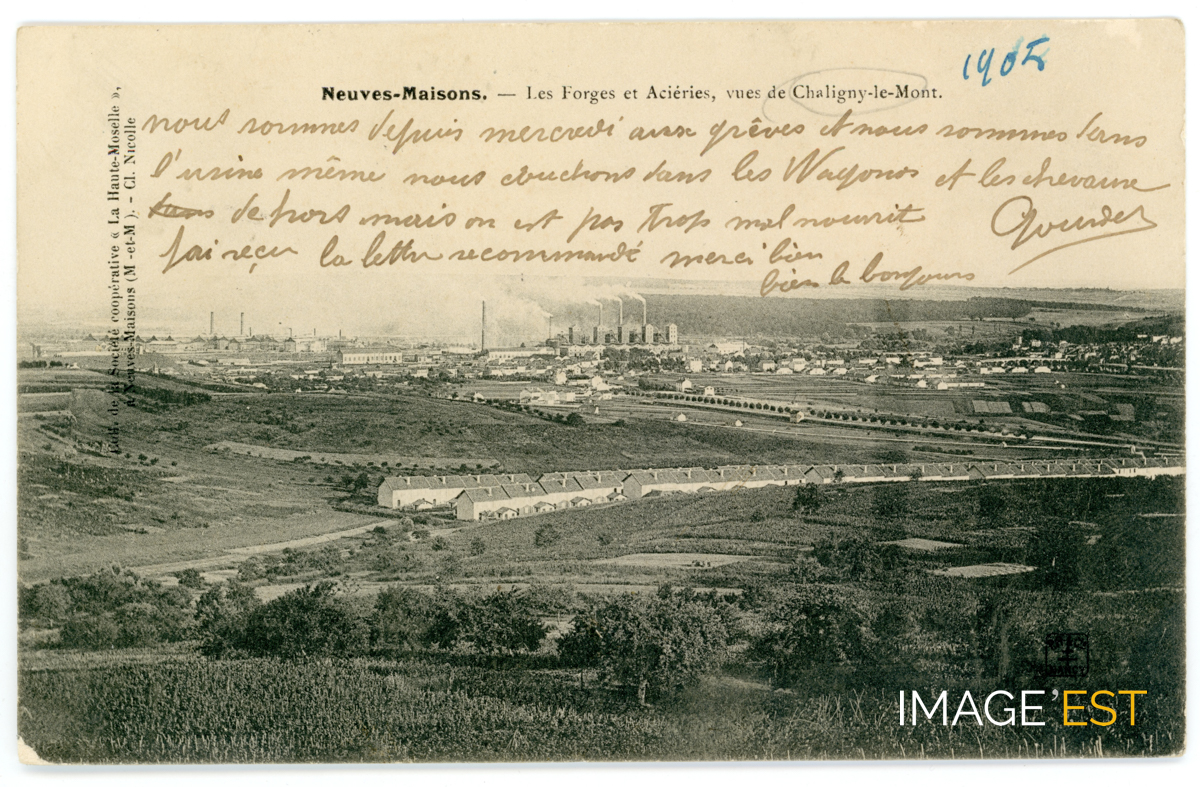 1905
Neuves-Maisons. — Les Forges et Aciéries, vues de Chaligny-le-Mont.
nous sommes depuis mercredi aux grêves et nous sommes dans
l'usine même nous couchons dans les Wagons et les chevaux
dehors mais on est pas trop mal nourrit
Gourdet
j'ai reçu la lettre recommandé merci bien
bien le bonjours
Edit. de la Société coopérative « La Haute-Moselle »,
à Neuves-Maisons (M.-et-M.). - Cl. Nicolle
IMAGE'EST